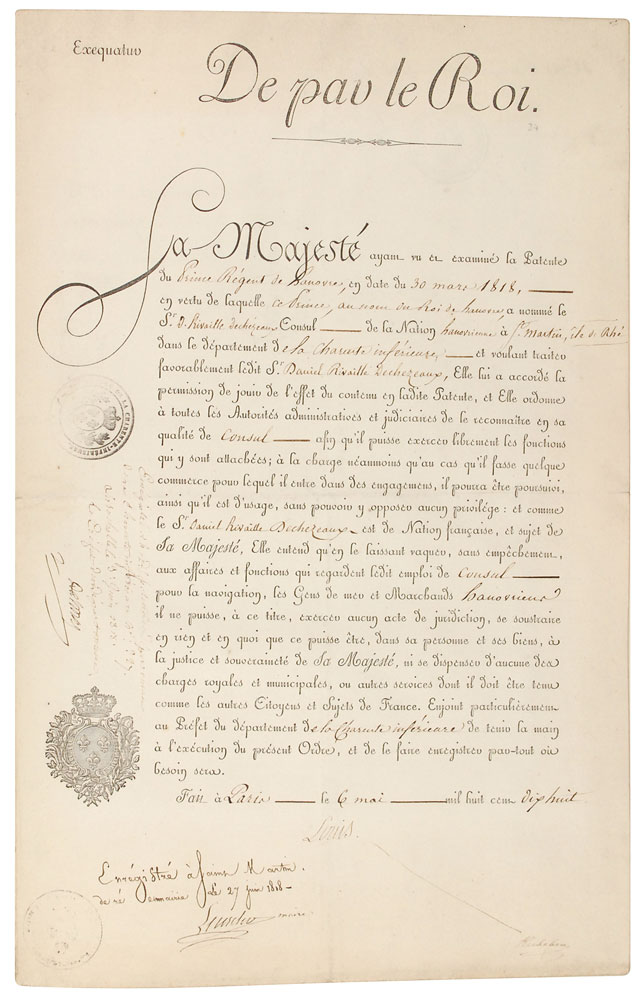 Exequatur
De par le Roi.
Sa Majesté ayant vu et examiné la Patente
du Prince Régent de hanovre, en date du 30 mars 1818,
en vertu de laquelle ce Prince, au nom du Roi de hanovre, a nommé le
Sr. D. Rivaille dechezeaux Consul de la Nation hanovrienne à St. Martin, île de Rhé
dans le département de la Charente inférieure, et voulant traiter
favorablement ledit Sr. Daniel Rivaille Dechezeaux, Elle lui a accordé la
permission de jouir de l'effet du contenu en ladite Patente, et Elle ordonne
à toutes les Autorités administratives et judiciaires de le reconnaître en sa
qualité de Consul afin qu'il puisse exercer librement les fonctions
qui y sont attachées; à la charge néanmoins qu'au cas qu'il fasse quelque
commerce pour lequel il entre dans des engagemens, il pourra être poursuivi,
ainsi qu'il est d'usage, sans pouvoir y opposer aucun privilége: et comme
le Sr. Daniel Rivaille Dechezeaux est de Nation française, et sujet de
Sa Majesté, Elle entend qu'en le laissant vaquer, sans empêchement,
aux affaires et fonctions qui regardent ledit emploi de Consul
pour la navigation, les Gens de mer et Marchands hanovriens
il ne puisse, à ce titre, exercer aucun acte de juridiction, se soustraire
en rien et en quoi que ce puisse être, dans sa personne et ses biens, à
la justice et souveraineté de Sa Majesté, ni se dispenser d'aucune des
charges royales et municipales, ou autres services dont il doit être tenu
comme les autres Citoyens et Sujets de France. Enjoint particulièrement
au Préfet du département de la Charente inférieure de tenir la main
à l'exécution du présent Ordre, et de le faire enregistrer par-tout où
besoin sera.
Fait à Paris le 6 mai mil huit cent dix huit.
Louis.
Enrégistré à Saint Martin
de ré en mairie Le 27 juin 1818
maire
LA CHARENTE-INFÉRIEURE